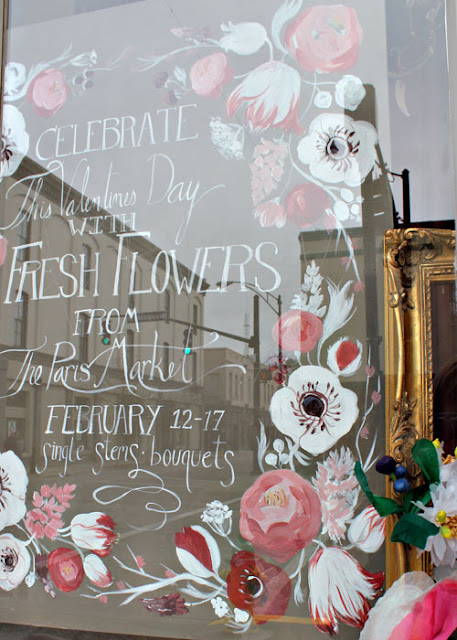 CELEBRATE
This Valentines Day
WITH
FRESH FLOWERS
FROM
The Paris Market
FEBRUARY 12-17
single stems · bouquets